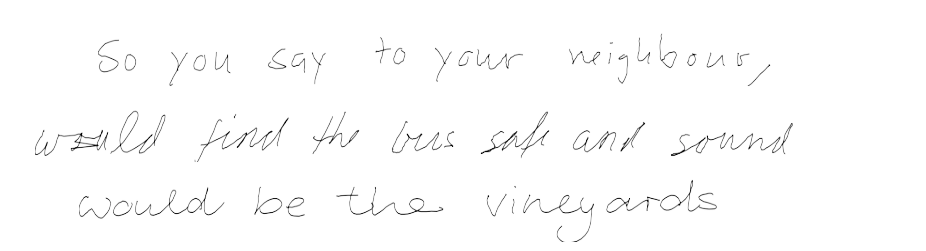 So you say to your neighbour,
would find the bus safe and sound
would be the vineyards